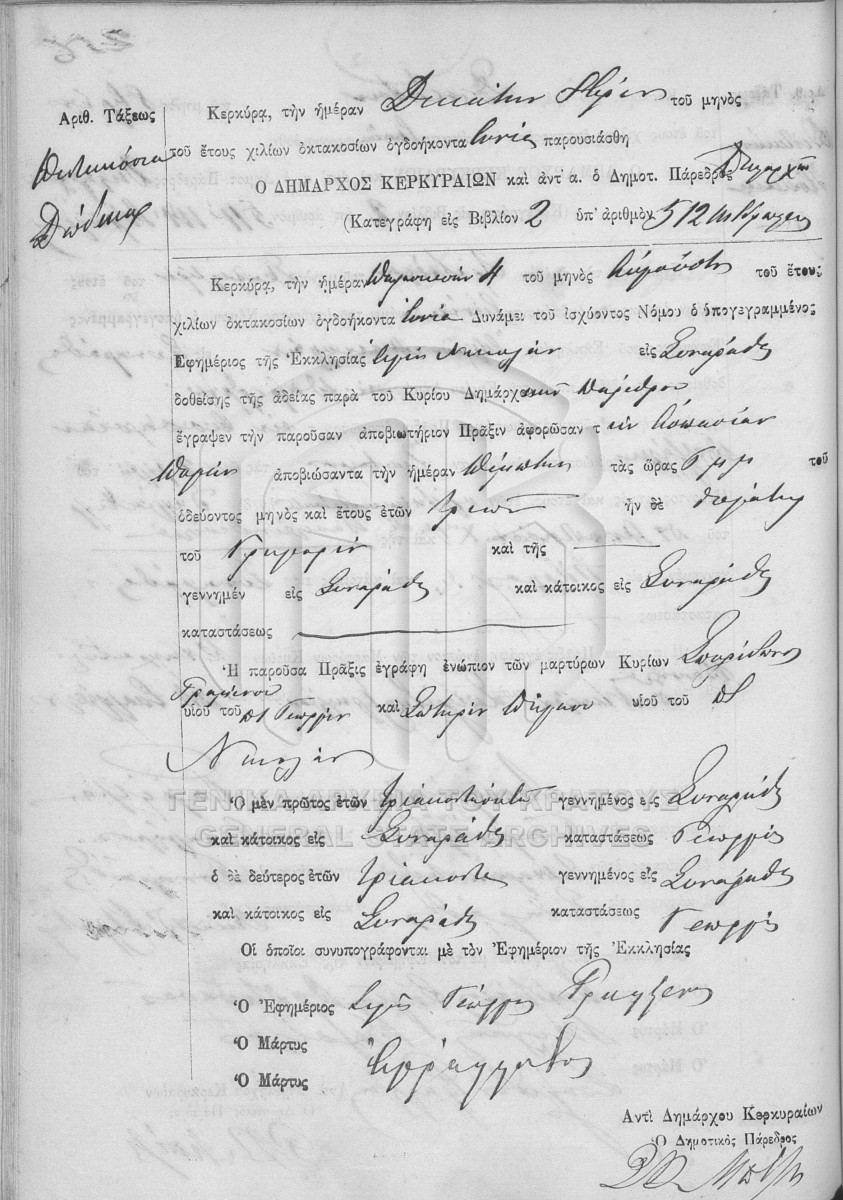 Αριθ. Τάξεως
Πεντακόσια
Δώδεκα
Κερκύρα, τὴν ἡμέραν Δεκάτην τοῦ μηνὸς
τοῦ ἔτους χιλίων ὀκτακοσίων ὀγδοήκοντα ἐννέα παρουσιάσθη
Ο ΔΗΜΑΡΧΟΣ ΚΕΡΚΥΡΑΙΩΝ καὶ ἀντ' α. ὁ Δημοτ. Πάρεδρος
(Κατεγράφη εἰς Βιβλίον 2 ὑπ' ἀριθμὸν 512
Κερκύρα, τὴν ἡμέραν Παρασκευὴν 4 τοῦ μηνὸς Αὐγούστου τοῦ ἔτους
χιλίων ὀκτακοσίων ὀγδοήκοντα ἐννέα Δυνάμει τοῦ ἰσχύοντος Νόμου ὁ ὑπογεγραμμένος
Ἐφημέριος τῆς Ἐκκλησίας Ἁγίου Νικολάου εἰς Συναράδες
δοθείσης τῆς ἀδείας παρὰ τοῦ Κυρίου Δημάρχ Παρέδρου
ἔγραψεν τὴν παροῦσαν ἀποβιωτήριον Πρᾶξιν ἀφορῶσαν τ ὴν Ἀσπασίαν
ἀποβιώσαντα τὴν ἡμέραν Πέμπτην τὰς ὥρας 5 μ.μ. τοῦ
ὁδεύοντος μηνὸς καὶ ἔτους ἐτῶν τριῶν ἦν δὲ θυγάτηρ
τοῦ Γρηγορίου καὶ τῆς
γεννημέν εἰς Συναράδες καὶ κάτοικος εἰς Συναράδες
καταστάσεως
Ἡ παροῦσα Πρᾶξις ἐγράφη ἐνώπιον τῶν μαρτύρων Κυρίων Σπυρίδωνος
Γραμμένου
υἱοῦ τοῦ Γεωργίου καὶ Σωτηρίου υἱοῦ τοῦ
Νικολάου
ΓΕΝΙΚΑ ΑΡΧΕΙΑ ΤΟΥ ΚΡΑΤΟΥΣ
GENERAL STATE ARCHIVES
Ὁ μὲν πρῶτος ἐτῶν τριακονταοκτὼ γεννημένος εἰς Συναράδες
καὶ κάτοικος εἰς Συναράδες καταστάσεως Γεωργὸς
ὁ δὲ δεύτερος ἐτῶν τριάκοντα γεννημένος εἰς Συναράδες
καὶ κάτοικος εἰς Συναράδες καταστάσεως Γεωργὸς
Οἱ ὁποῖοι συνυπογράφονται μὲ τὸν Ἐφημέριον τῆς Ἐκκλησίας
Ὁ Ἐφημέριος Ἱερεὺς Γεώργιος
Ὁ Μάρτυς
Ὁ Μάρτυς Ἀγράμματος
Αντὶ Δημάρχου Κερκυραίων
Ὁ Δημοτικὸς Πάρεδρος